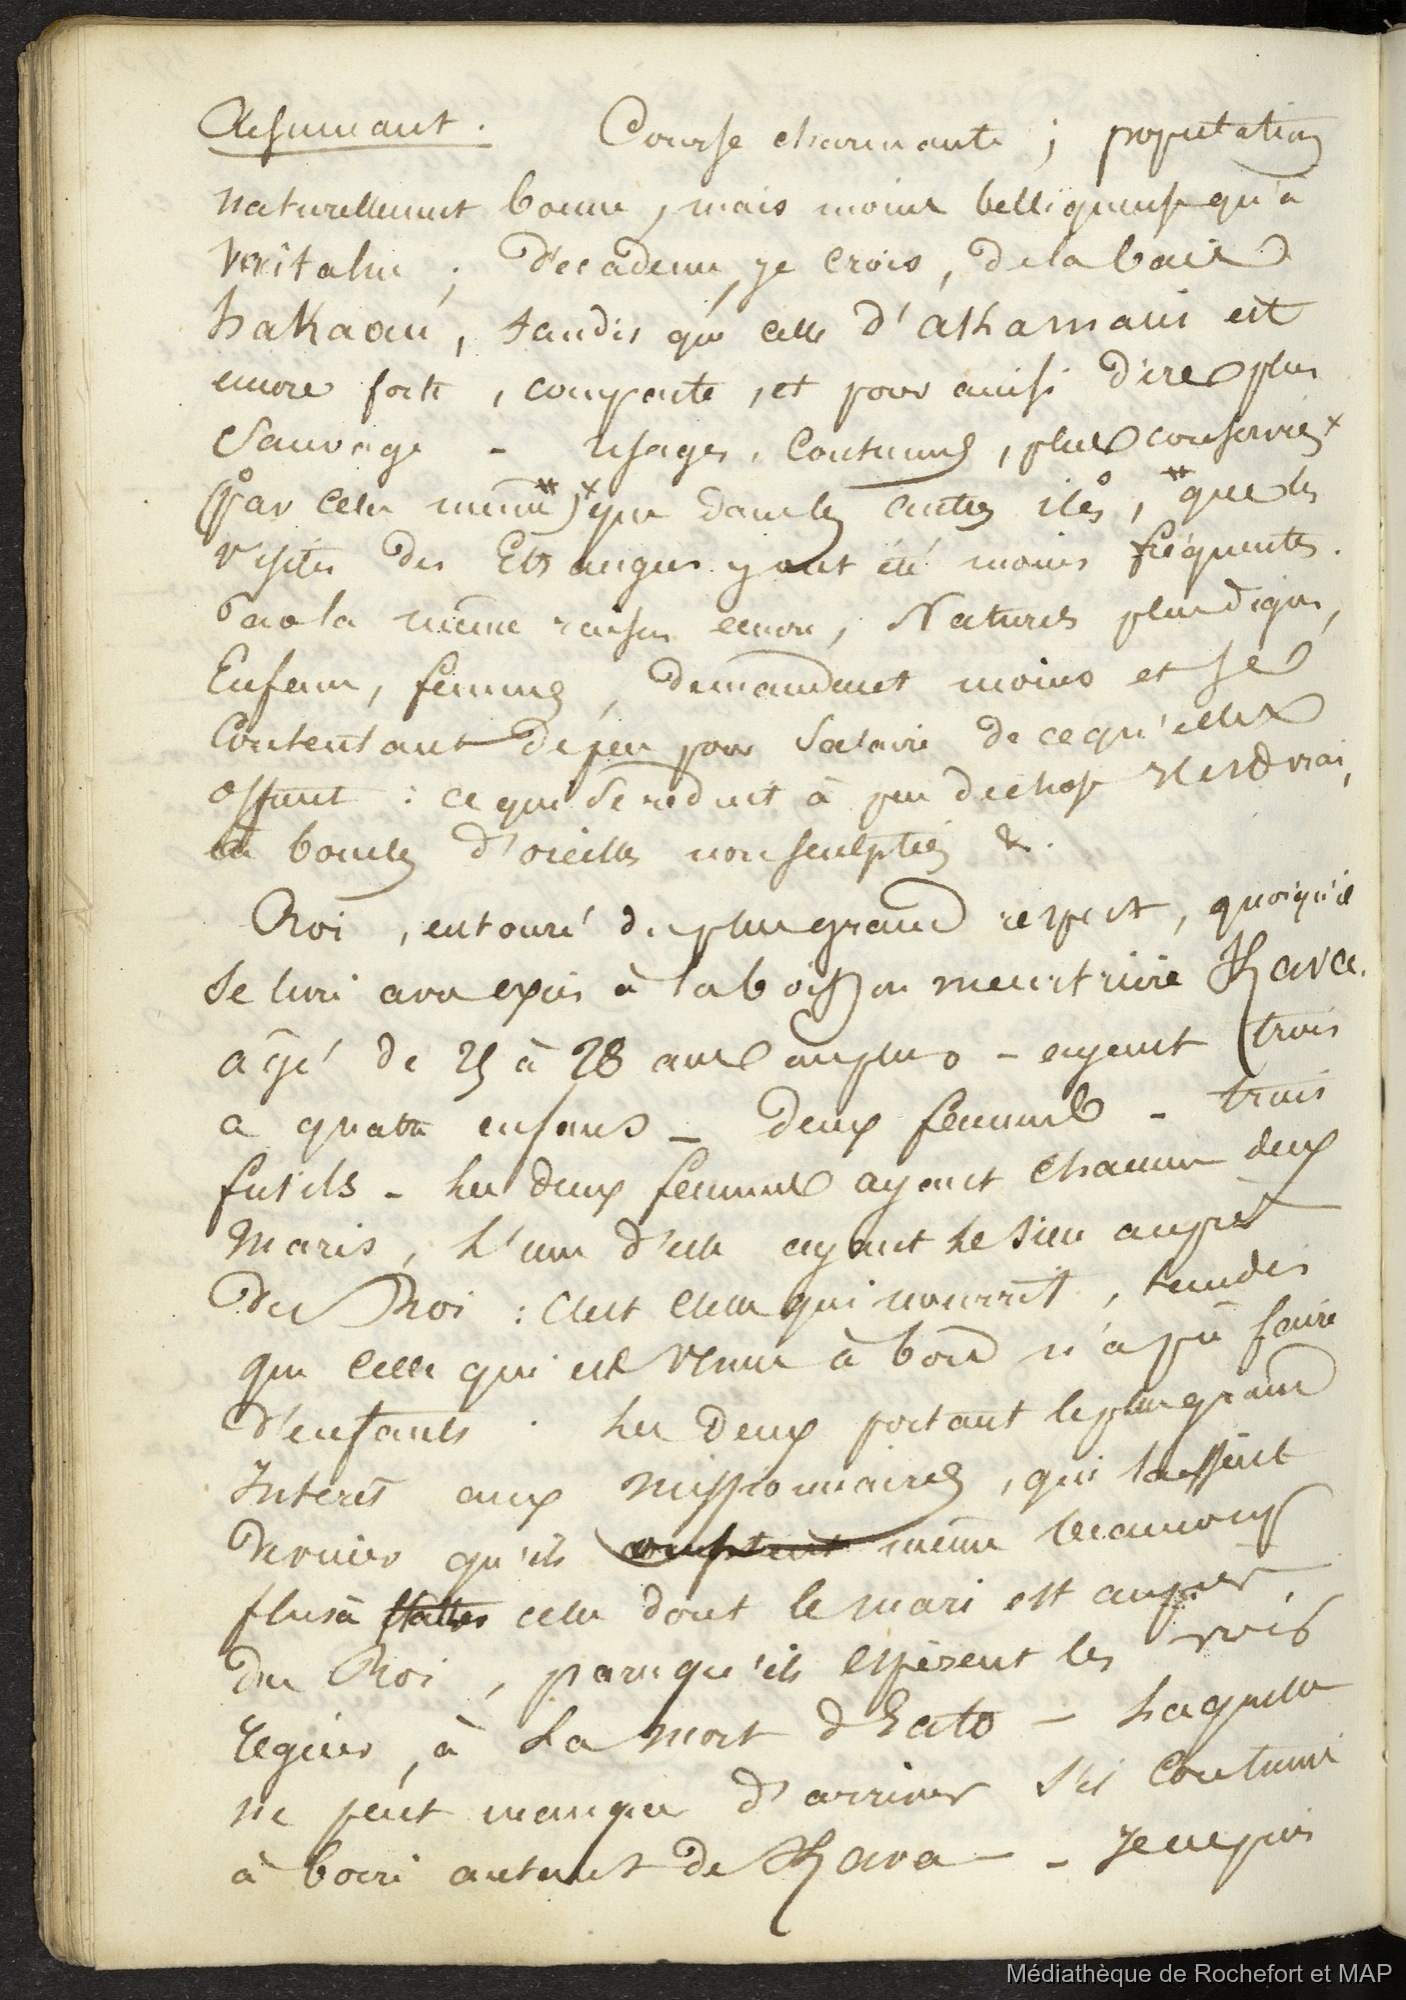 Résumant. Course charmante ; population
naturellement bonne, mais moins belliqueuse qu'à
Vaïtahu ; décadence, je crois, de la baie
hakaoui, tandis que celle d'akamaui est
encore forte, compacte, et pour ainsi dire plus
Sauvage - usages, Coutumes, plus conservés x
(par cela même #) x que dans les autres iles, # que les
visites des Etrangers y ont été moins fréquentes.
Par la même raison encore, Natures plus dignes,
Enfans, femmes, demandent moins et se
Contentant de peu pour Salaire de ce qu'elles
offrent : ce qui se reduit à peu de chose il est vrai,
à boucles d'oreilles non sculptées &.
Roi, entouré du plus grand respect, quoiqu'il
se livre avec excès à la boisson meurtrière Kava.
âgé de 25 à 28 ans au plus - ayant trois
a quatre enfans - deux femmes - trois
fusils - les deux femmes ayant chacune deux
maris, l'une d'elle ayant le sien auprès
du Roi : c'est celle qui nourrit, tandis
que celle qui est venue à bord n'a pu faire
d'enfants. les deux portant le plus grand
Interet aux missionnaires, qui
dernier qu'ils même beaucoup
plus à celle dont le mari est auprès
du Roi, parcequ'ils espèrent les voir
régner, à la mort d'Iato - laquelle
ne peut manquer d'arriver s'il continue
à boire autant de Kava - Je ne puis
Médiathèque de Rochefort et MAP